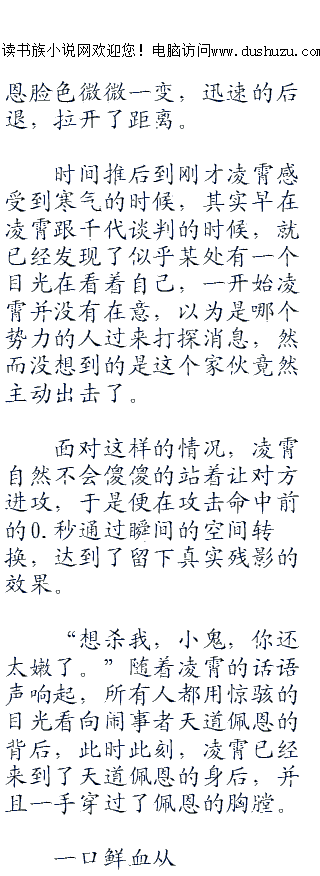 读书族小说网欢迎您！电脑访问www.dushuzu.com
恩脸色微微一变，迅速的后
退，拉开了距离。
时间推后到刚才凌霄感
受到寒气的时候，其实早在
凌霄跟千代谈判的时候，就
已经发现了似乎某处有一个
目光在看着自己，一开始凌
霄并没有在意，以为是哪个
势力的人过来打探消息，然
而没想到的是这个家伙竟然
主动出击了。
面对这样的情况，凌霄
自然不会傻傻的站着让对方
进攻，于是便在攻击命中前
的0.秒通过瞬间的空间转
换，达到了留下真实残影的
效果。
“想杀我，小鬼，你还
太嫩了。”随着凌霄的话语
声响起，所有人都用惊骇的
目光看向闹事者天道佩恩的
背后，此时此刻，凌霄已经
来到了天道佩恩的身后，并
且一手穿过了佩恩的胸膛。
一口鲜血从